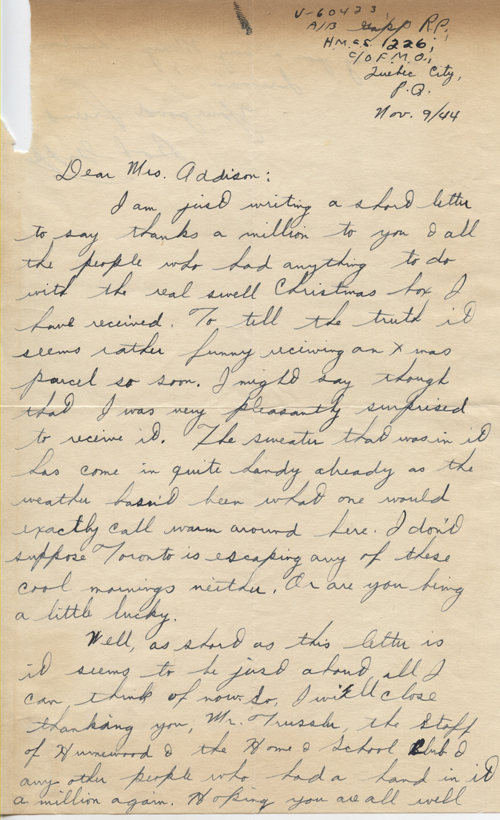 V-60423
A/B Gapp R.P.,
H.M.C.S. 1226,
C/O F.M.O.,
Quebec City,
P.Q.
Nov. 9/44
Dear Mrs. Addison:
I am just writing a short letter
to say thanks a million to you & all
the people who had anything to do
with the real swell Christmas box I
have received. To tell the truth it
seems rather funny receiving an Xmas
parcel so soon. I might say though
that I was very pleasantly surprised
to receive it. The sweater that was in it
has come in quite handy already as the
weather hasn't been what one would
exactly call warm around here. I don't
suppose Toronto is escaping any of these
cool mornings neither. Or are you being
a little lucky.
Well, as short as this letter is
it seems to be just about all I
can think of now. So, I will close
thanking you, Mr. Trussler, the Staff
of Humewood & the Home & School Club &
any other people who had a hand in it
a million again. Hoping you are all well